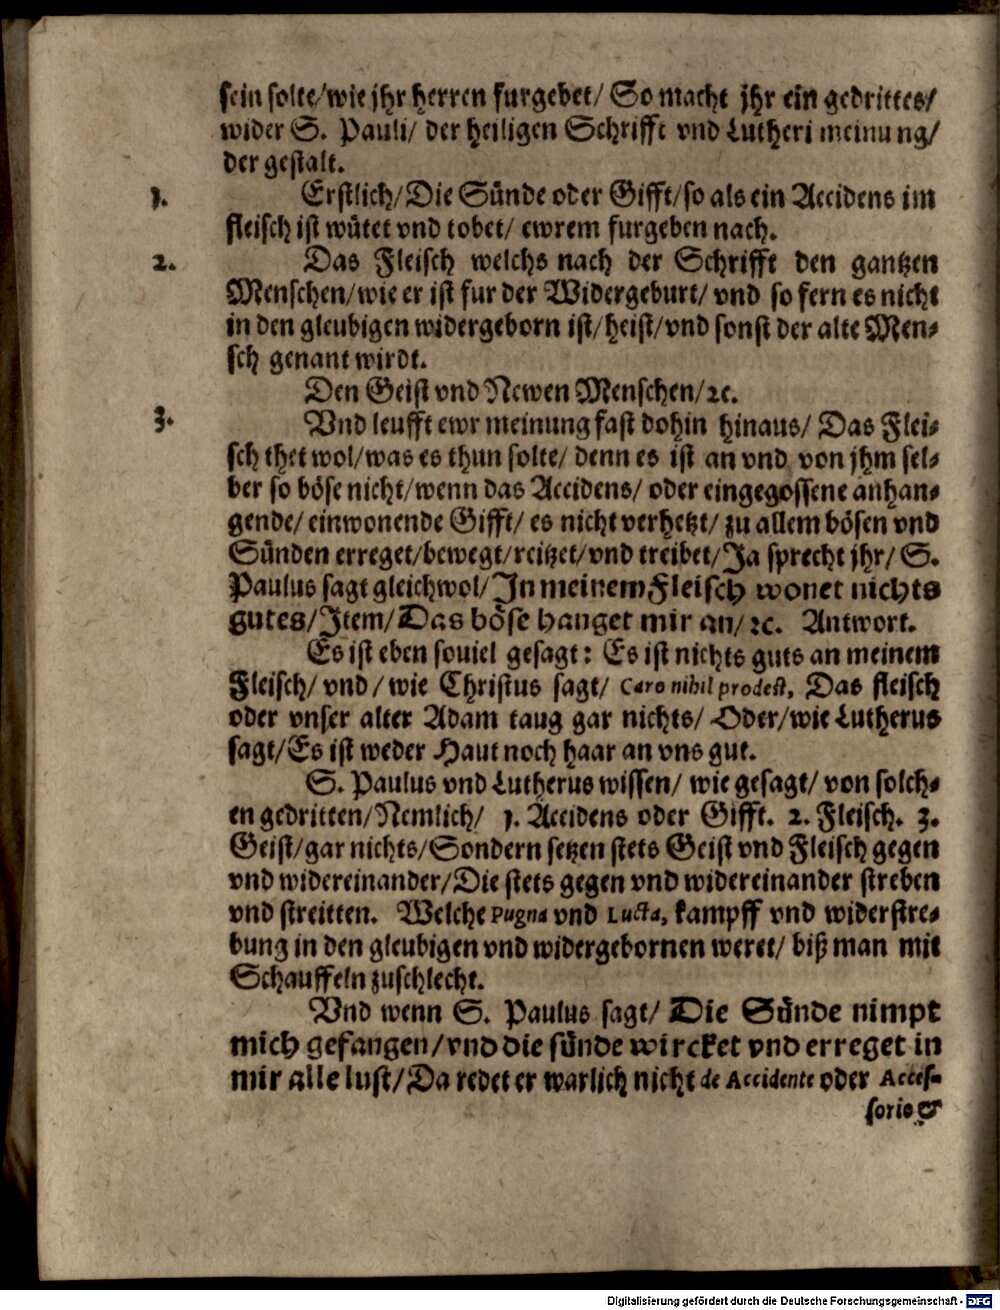 sein solte/wie jhr herren furgebet/ So macht jhr ein gedrittes/
wider S. Pauli/ der heiligen Schrifft vnd Lutheri meinung/
der gestalt.
1. Erstlich/Die Sünde oder Gifft/so als ein Accidens im
fleisch ist wütet vnd tobet/ ewrem furgeben nach.
2. Das Fleisch welchs nach der Schrifft den gantzen
Menschen/wie er ist fur der Widergeburt/ vnd so fern es nicht
in den gleubigen widergeborn ist/heist/vnd sonst der alte Men-
sch genant wirdt.
Den Geist vnd Newen Menschen/ꝛc.
3. Vnd leufft ewr meinung fast dohin hinaus/ Das Flei-
sch thet wol/was es thun solte/ denn es ist an vnd von jhm sel-
ber so böse nicht/wenn das Accidens/ oder eingegossene anhan-
gende/ einwonende Gifft/ es nicht verhetzt/ zu allem bösen vnd
Sünden erreget/bewegt/reitzet/vnd treibet/Ja sprecht jhr/ S.
Paulus sagt gleichwol/In meinem Fleisch wonet nichts
gutes/Item/Das böse hanget mir an/ꝛc. Antwort.
Es ist eben souiel gesagt: Es ist nichts guts an meinem
Fleisch/ vnd/wie Christus sagt/ Caro nihil prodest, Das fleisch
oder vnser alter Adam taug gar nichts/ Oder/wie Lutherus
sagt/Es ist weder Haut noch haar an vns gut.
S. Paulus vnd Lutherus wissen/ wie gesagt/ von solch-
en gedritten/Nemlich/ 1. Accidens oder Gifft. 2. Fleisch. 3.
Geist/gar nichts/Sondern setzen stets Geist vnd Fleisch gegen
vnd widereinander/Die stets gegen vnd widereinander streben
vnd streitten. Welche Pugna vnd Lucta, kampff vnd widerstre-
bung in den gleubigen vnd widergebornen weret/ biß man mit
Schauffeln zuschlecht.
Vnd wenn S. Paulus sagt/ Die Sünde nimpt
mich gefangen/vnd die sünde wircket vnd erreget in
mir alle lust/Da redet er warlich nicht de Accidente oder Acces-
sorio
Digitalisierung gefördert durch die Deutsche Forschungsgemeinschaft - DFG